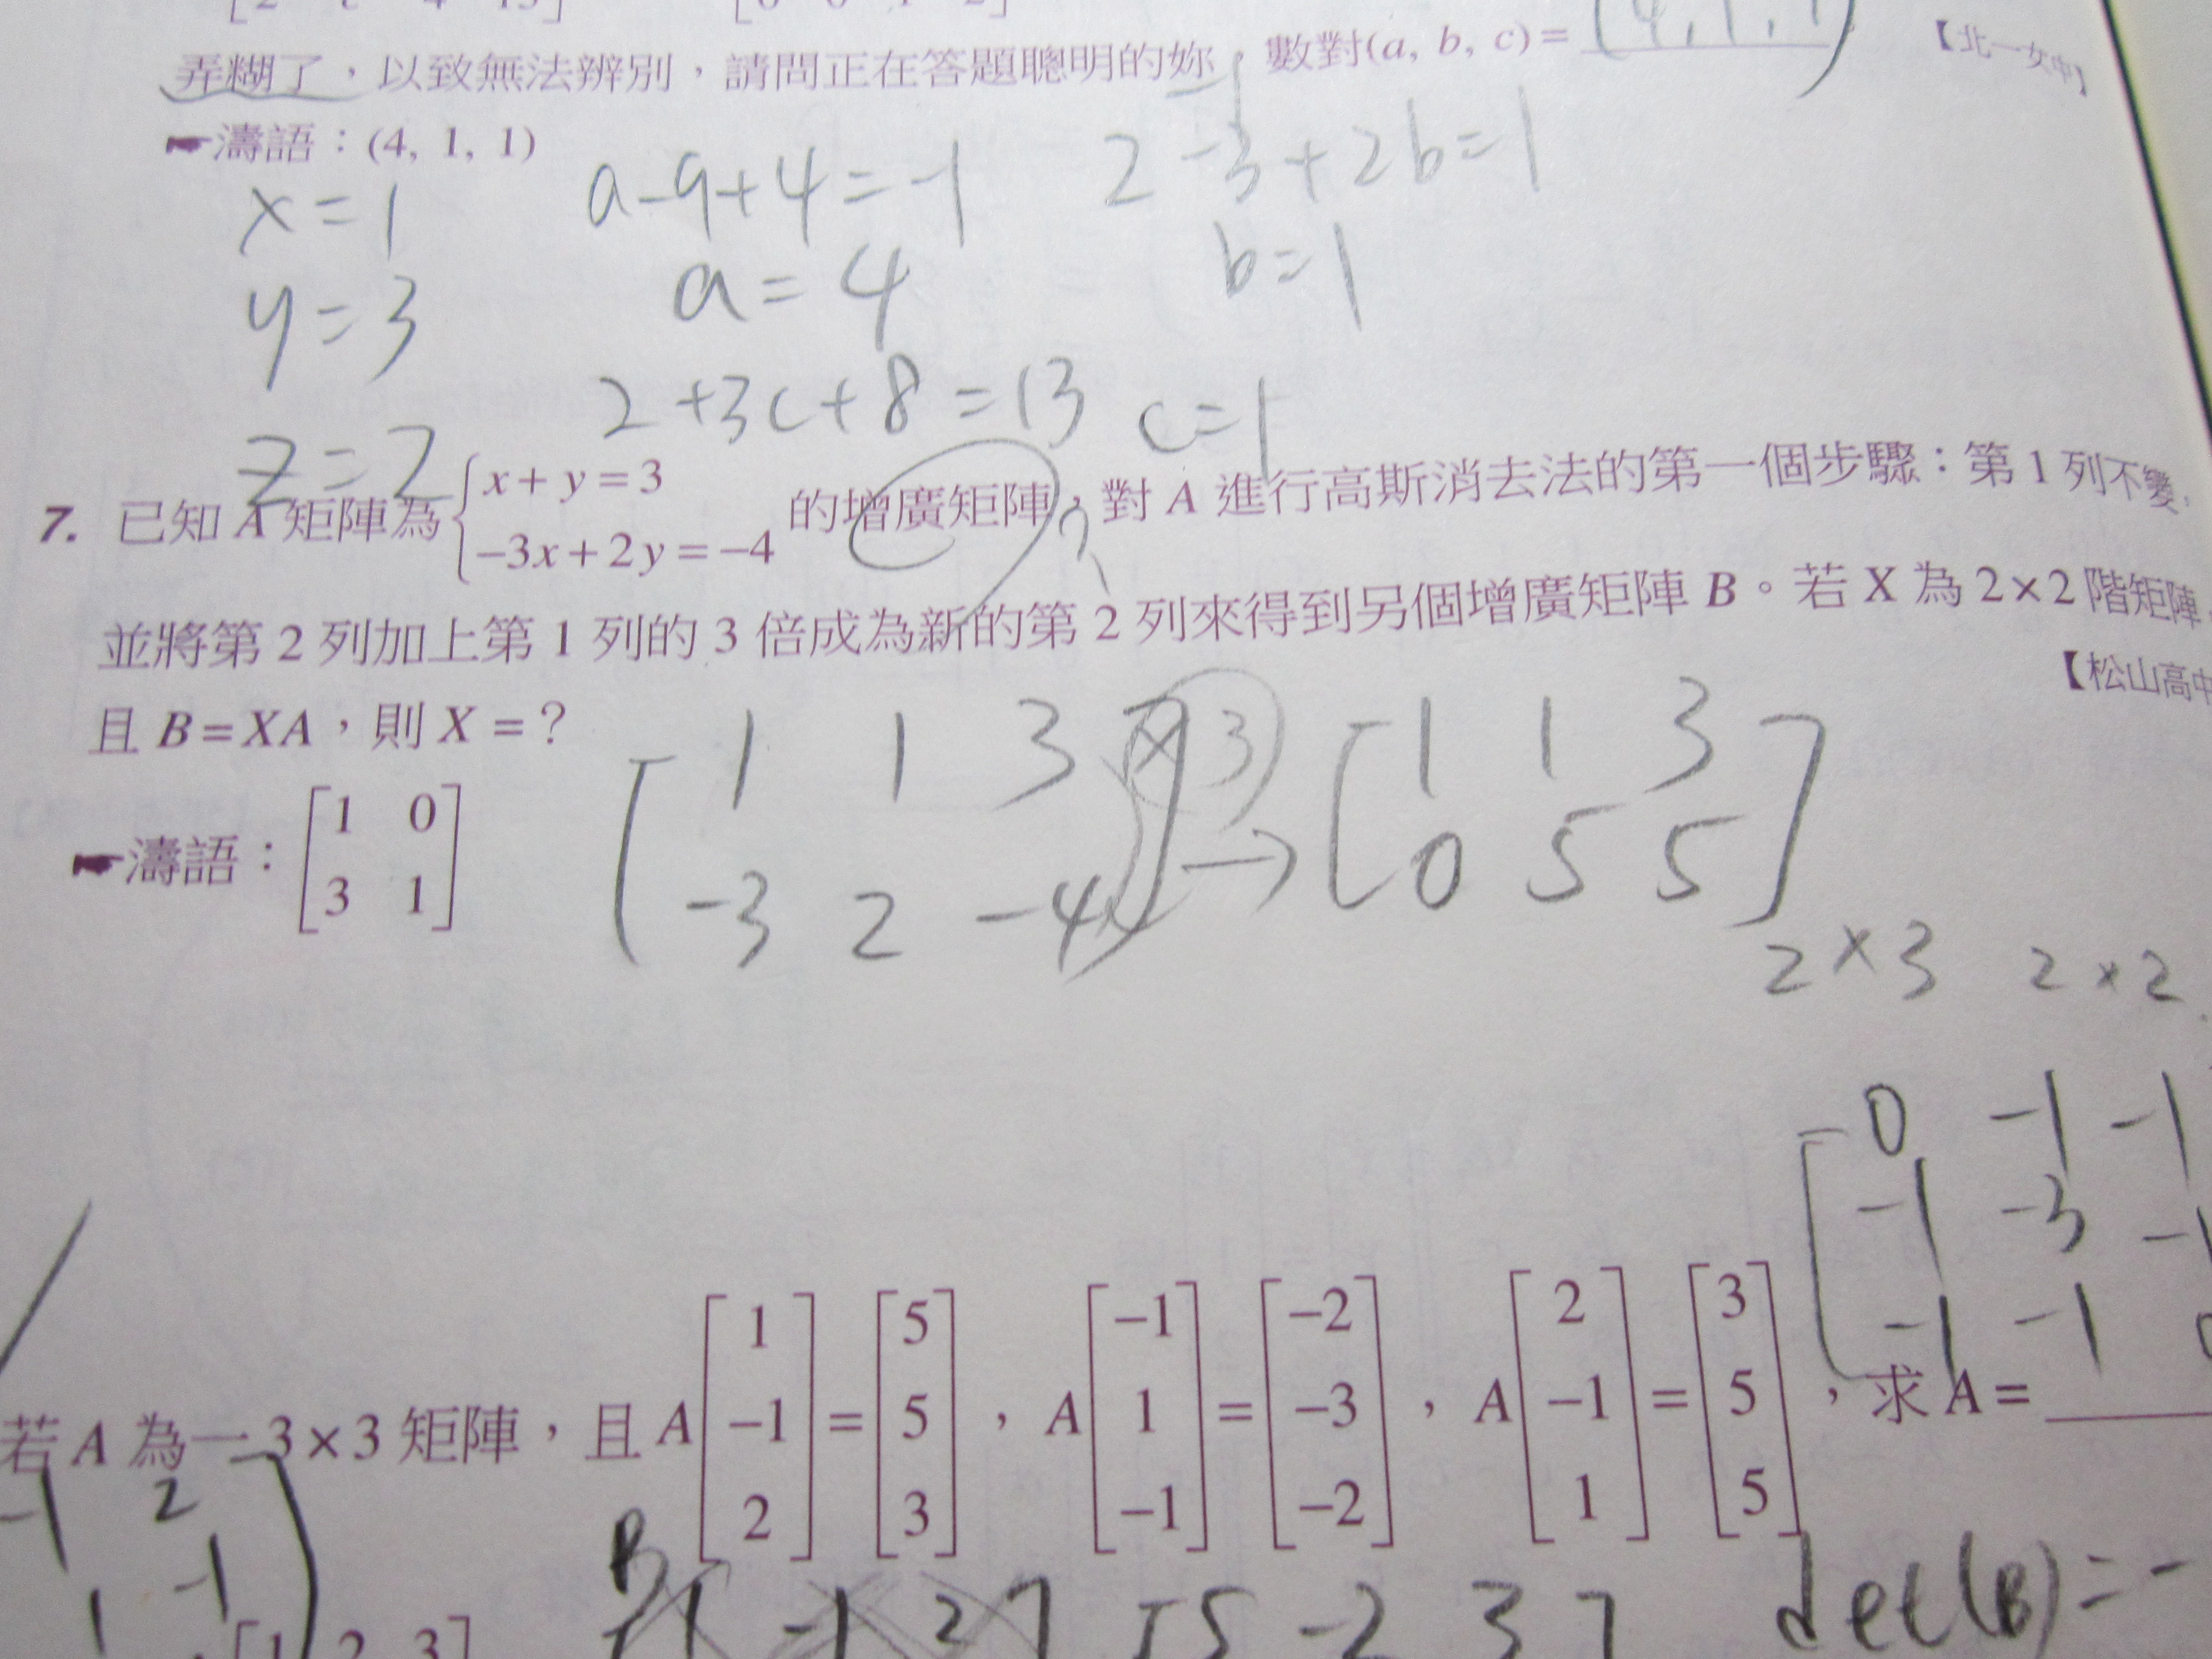 弄糊了，以致無法辨別，請問正在答題聰明的妳，數對(a, b, c)= (4, 1, 1) 【北一女中】
☛濤語：(4, 1, 1)
x=1
y=3
z=2
a-9+4=-1
a=4
2-3+2b=1
b=1
2+3c+8=13 c=1
7. 已知 A 矩陣為 { x+y=3
-3x+2y=-4 的增廣矩陣，對 A 進行高斯消去法的第一個步驟：第 1 列不變，
並將第 2 列加上第 1 列的 3 倍成為新的第 2 列來得到另個增廣矩陣 B。若 X 為 2×2 階矩陣，
且 B=XA，則 X=？ 【松山高中
☛濤語：[1 0
3 1]
[1 1 3
-3 2 -4] ×3 → [1 1 3
0 5 5]
2×3 2×2
[0 -1 -1
-1 -3 -1
-1 -1 0
若 A 為一 3×3 矩陣，且 A[1 -1 2] = [5 5 3]，A[-1 1 -1] = [-2 -3 -2]，A[2 -1 1] = [3 5 5]，求 A=
-1 2
1 -1
B
-1 2
[5 -2 3]
det(B)=-
2 3]